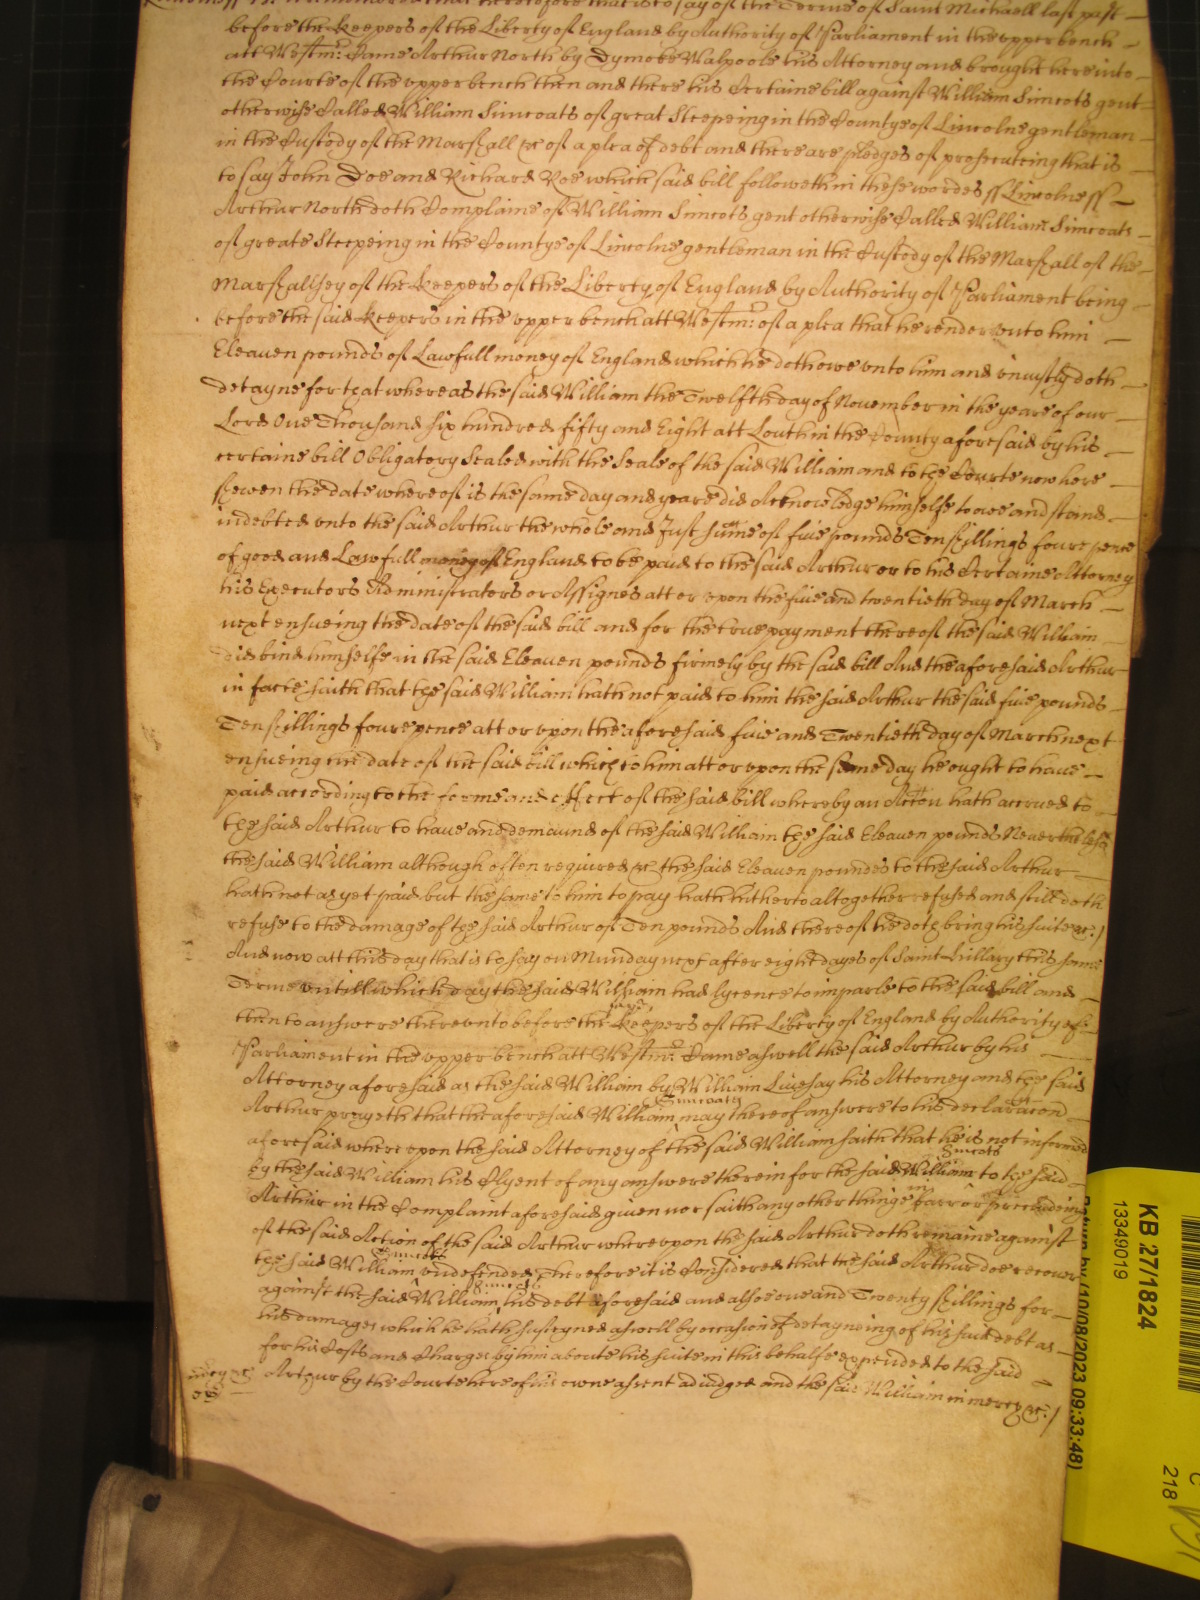 Lincolness Be it remembred that heretofore that is to say of the Terme of Saint Michaell last past
before the Keepers of the Liberty of England by Authority of Parliament in the upper bench
att Westmr: Came Arthur North by Dymoke Walpoole his Attorney and brought here into
the Courte of the upper bench then and there his Certaine bill against William Simcots gent
otherwise Called William Simcoats of great Steepeing in the Countye of Lincolne gentleman
in the Custody of the Marshall &c of a plea of debt and there are pledges of prosecuteing that is
to say John Doe and Richard Roe which said bill followeth in these wordes ss Lincolness
Arthur North doth Complaine of William Simcots gent otherwise Called William Simcoats
of greate Steepeing in the Countye of Lincolne gentleman in the Custody of the Marshall of the
Marshallsey of the Keepers of the Liberty of England by Authority of Parliament being
before the said Keepers in the upper bench att Westmr: of a plea that he render unto him
Eleaven pounds of Lawfull money of England which he doth owe unto him and uniustly doth
detayne for that whereas the said William the Twelfth day of November in the yeare of our
Lord One Thousand six hundred fifty and Eight att Louth in the County aforesaid by his
certaine bill Obligatory Sealed with the Seale of the said William and to the Courte now here
shewen the date whereof is the same day and yeare did Acknowledge himselfe to owe and stand
indebted unto the said Arthur the whole and Just sume of five pounds Ten shillings foure pence
of good and Lawfull money of England to be paid to the said Arthur or to his Certaine Attorney
his Executors Administrators or Assignes att or upon the five and twentieth day of March
next ensueing the date of the said bill and for the true payment thereof the said William
did bind himselfe in the said Eleaven pounds firmely by the said bill And the aforesaid Arthur
in facte saith that the said William hath not paid to him the said Arthur the said five pounds
Ten shillings foure pence att or upon the aforesaid five and Twentieth day of March next
ensueing the date of the said bill which to him att or upon the same day he ought to have
paid according to the forme and effect of the said bill whereby an Action hath accrued to
the said Arthur to have and demaund of the said William the said Eleaven pounds Neverthelesse
the said William although often required &c the said Eleaven poundes to the said Arthur
hath not as yet paid but the same to him to pay hath hitherto altogether refused and still doth
refuse to the damage of the said Arthur of Ten pounds And thereof he doth bring his suite &c:/
And now att this day that is to say on Munday next after eight dayes of Saint Hillary this same
Terme untill which day the said William had lycence to imparle to the said bill and
then to answere thereunto before the said Keepers of the Liberty of England by Authority of
Parliament in the upper bench att Westmr: Came aswell the said Arthur by his
Attorney aforesaid as the said William by William Livesay his Attorney and the said
Arthur prayeth that the aforesaid William Simcoats may thereof answere to his declaracon
aforesaid whereupon the said Attorney of the said William saith that he is not informed
by the said William his Clyent of any answere therein for the said William Simcots to the said
Arthur in the Complaint aforesaid given nor saith any other thinge in barr or precludeing
of the said Action of the said Arthur whereupon the said Arthur doth remaine against
the said William Simcots undefended Therefore it is Considered that the said Arthur doe recover
against the said William Simcots his debt aforesaid and alsoe one and Twenty shillings for
his damages which he hath susteyned aswell by occasion of detayneing of his said debt as
for his Costs and Charges by him aboute his suite in this behalfe expended to the said
mercy &c Arthur by the Courte here of his owne assent adiudged and the said William in mercy &c:/
KB 27/1824
13349019
(10/08/2023 09:33:48)
218